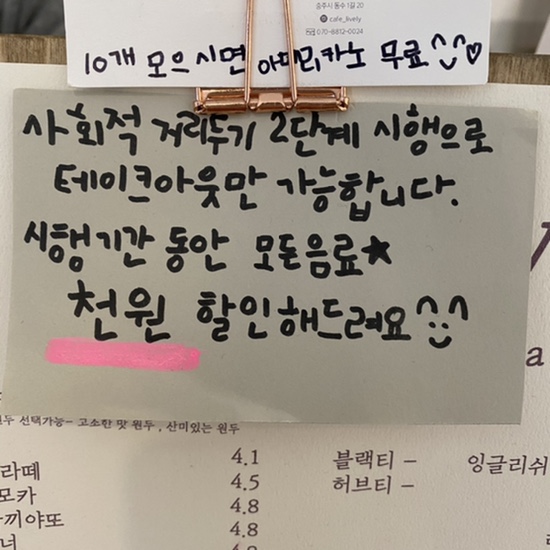 충주시 동수 1길 20
cafe_lively
070-8812-0024
10개 모으시면 아메리카노 무료^^♡
사회적 거리두기 2단계 시행으로
테이크아웃만 가능합니다.
시행기간 동안 모든음료★
천원 할인해드려요^^
선택가능- 고소한 맛 원두, 산미있는 원두
라떼 4.1
모카 4.5
끼야또 4.8
너 4.8
블랙티 -
허브티 -
잉글리쉬